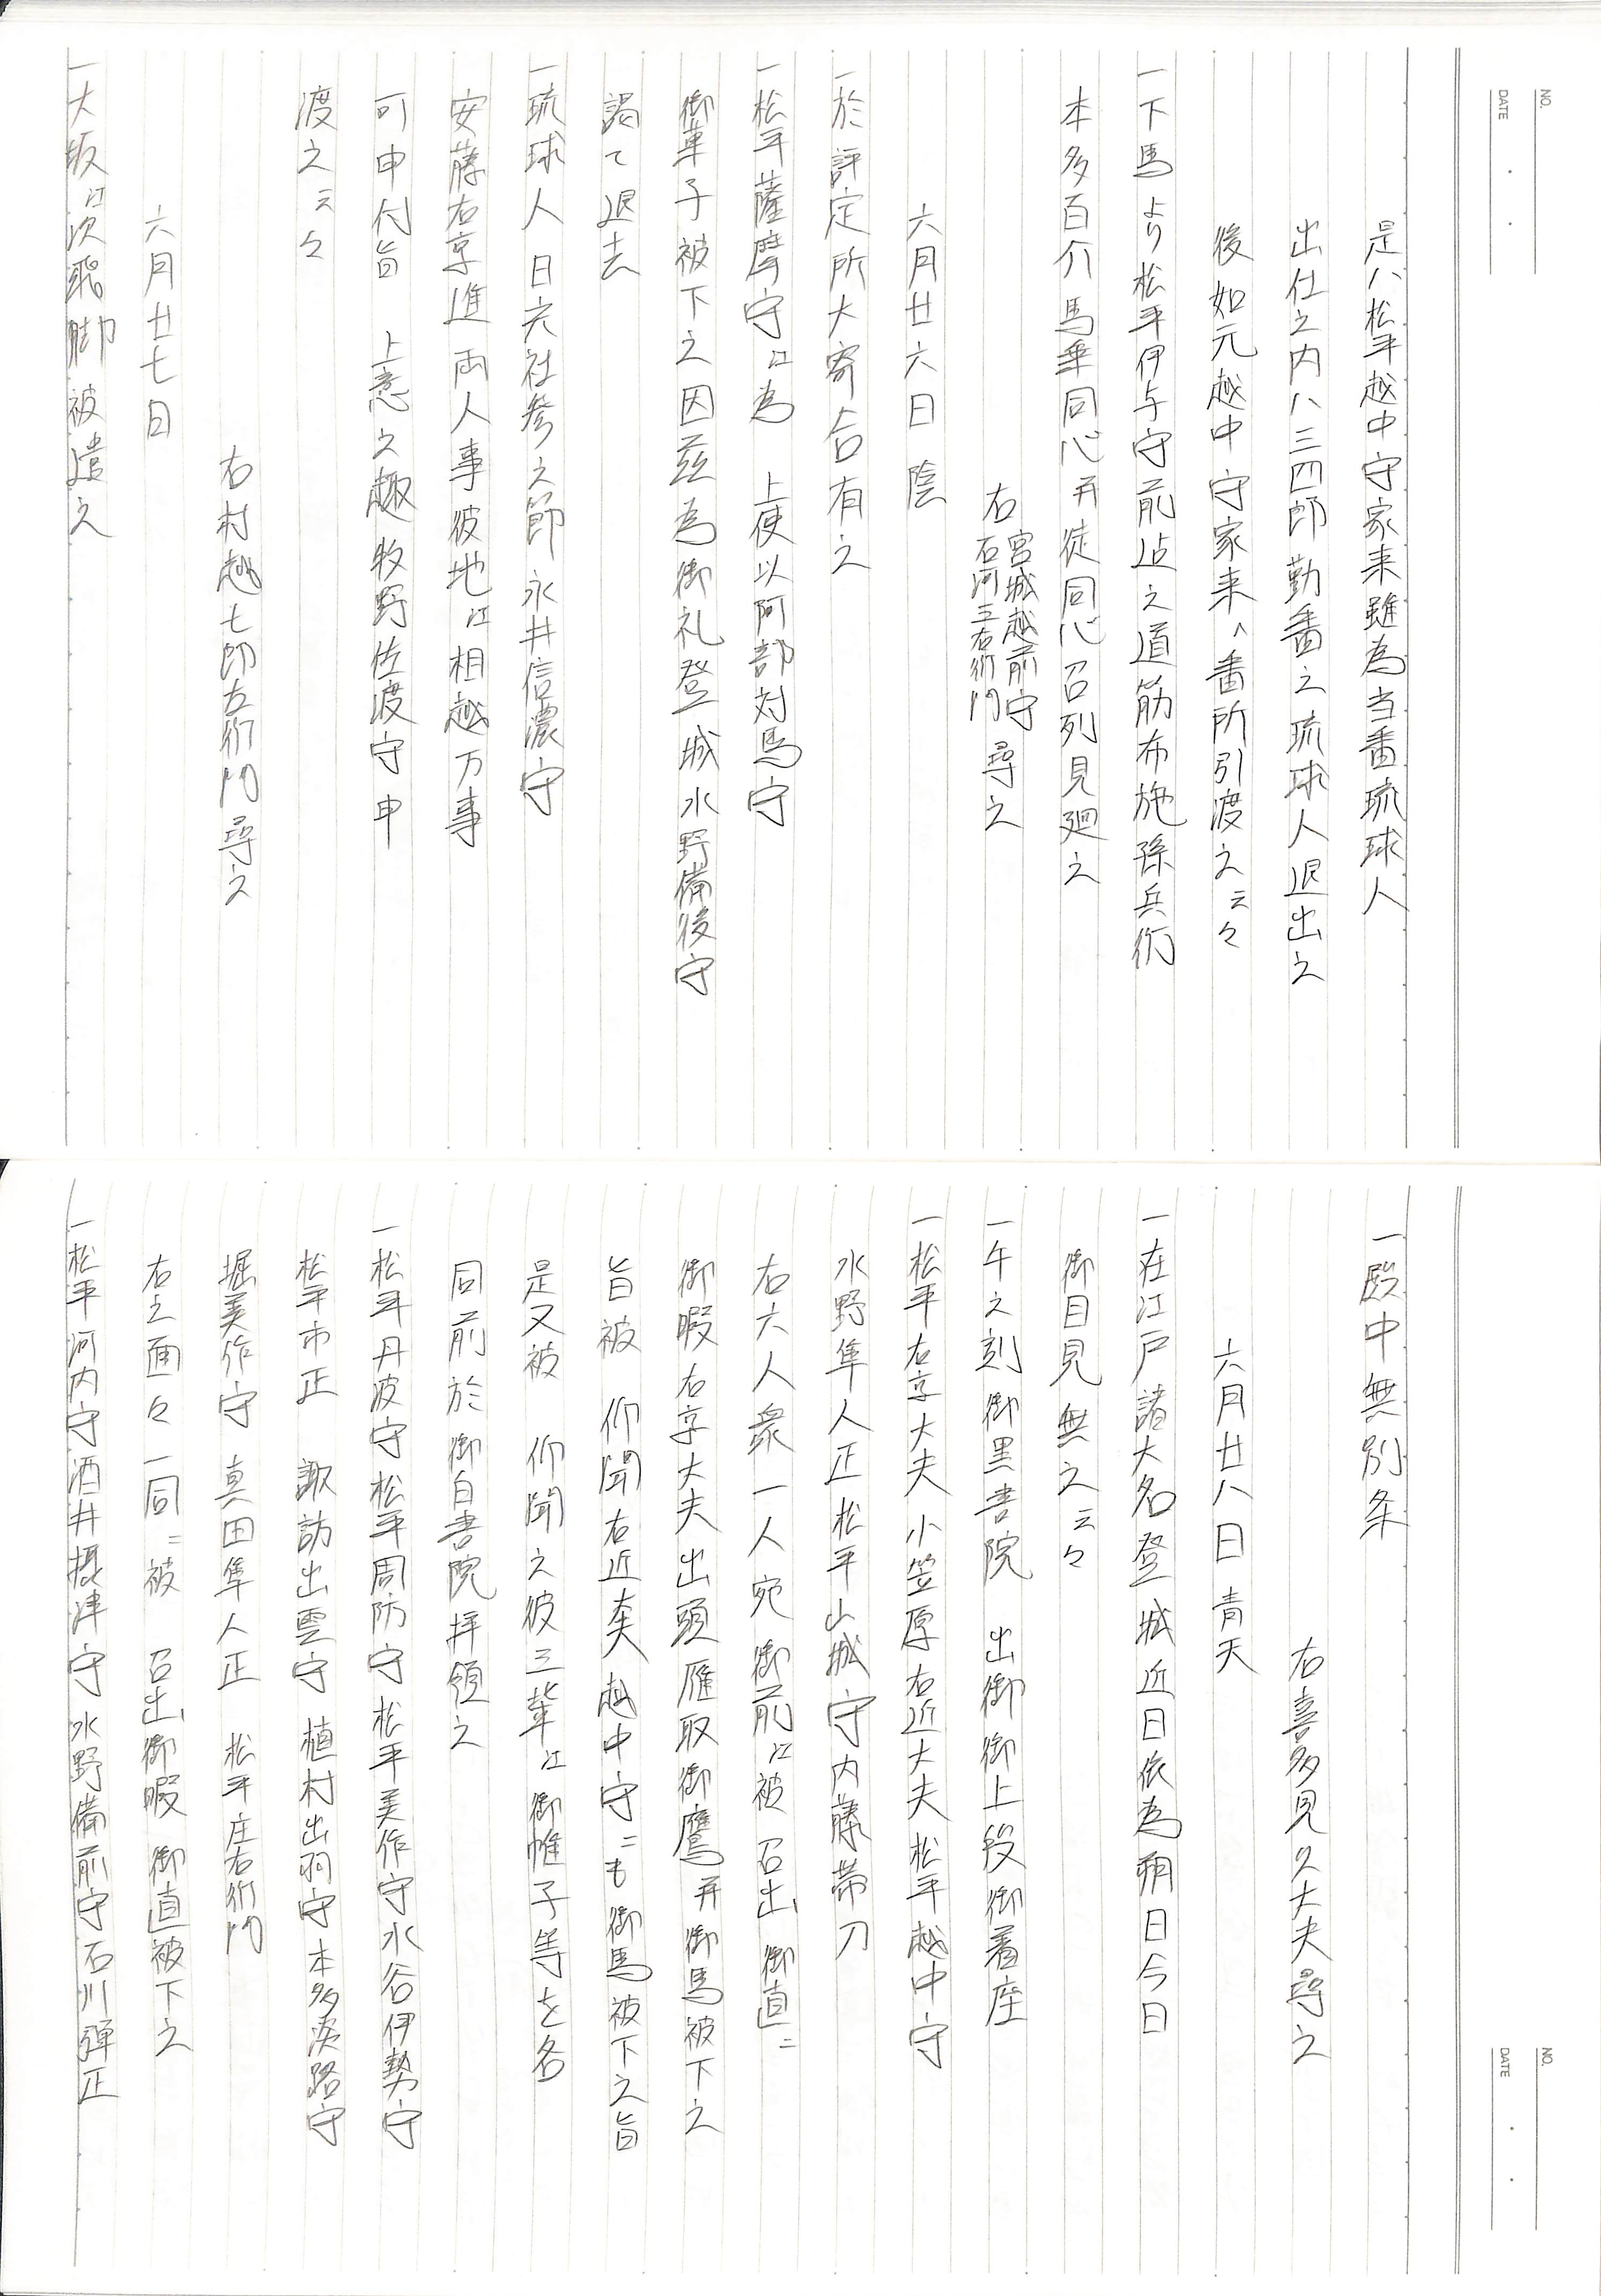 NO.
DATE
是ハ松平越中守家来雖為当番琉球人
出仕之内ハ三四郎勤番之琉球人退出之
後如元越中守家来へ番所引渡之云々
一下馬より松平伊与守前迠之道筋布施孫兵衛
本多百介馬乗同心并徒同心召列見廻之
右 宮城越前守 石河三右衛門 尋之
六月廿六日 陰
一於評定所大寄合有之
一松平薩摩守江為 上使以阿部対馬守
御菓子被下之因茲為御礼登城水野備後守
謁て退去
一琉球人日光社参之節永井信濃守
安藤右京進両人事彼地江相越万事
可申付旨 上意之趣牧野佐渡守申
渡之云々
右村越七郎左衛門尋之
六月廿七日
一大坂江次飛脚被遣之
NO.
DATE
一殿中無別条
右喜多見久大夫尋之
六月廿八日 青天
一在江戸諸大名登城近日依為朔日今日
御目見無之云々
一午之刻御黒書院 出御御上段御着座
一松平右京大夫小笠原右近大夫松平越中守
水野隼人正松平山城守内藤帯刀
右六人衆一人宛御前江被召出御直ニ
御暇右京大夫出頭雁取御鷹并御馬被下之
旨被 仰聞右近大夫越中守ニも御馬被下之旨
是又被 仰聞之彼三輩江御帷子等を各
同前於御白書院拝領之
一松平丹波守松平周防守松平美作守水谷伊勢守
松平市正 諏訪出雲守植村出羽守本多淡路守
堀美作守 真田隼人正 松平庄右衛門
右之面々一同ニ被 召出御暇御直被下之
一松平河内守酒井摂津守水野備前守石川弾正